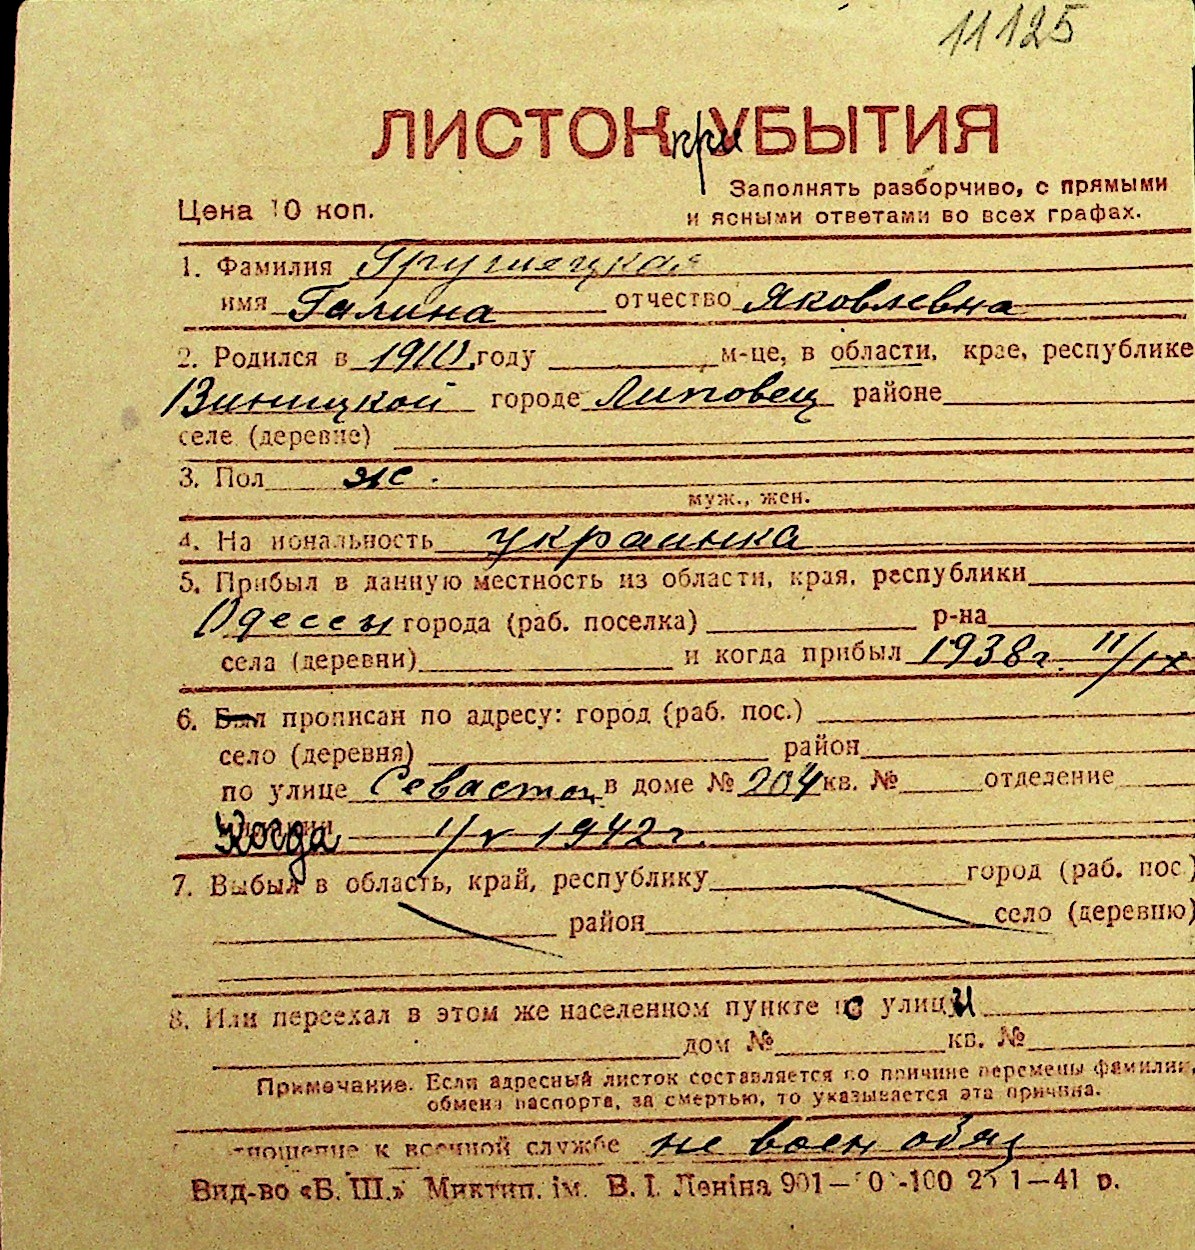 11125
ЛИСТОК при УБЫТИЯ
Заполнять разборчиво, с прямыми
Цена 10 коп. и ясными ответами во всех графах.
1. Фамилия
имя Галина отчество Яковлевна
2. Родился в 1910 году м-це, в области, крае, республике
Виницкой городе Липовец районе
селе (деревне)
3. Пол ж.
муж., жен.
4. На иональность украинка
5. Прибыл в данную местность из области, края, республики
Одессы города (раб. поселка) р-на
села (деревни) и когда прибыл 1938 г. 11/IX
6. Был прописан по адресу: город (раб. пос.)
село (деревня) район
по улице Севастоп в доме № 204 кв. № отделение
Когда 1/V 1942 г.
7. Выбыл в область, край, республику город (раб. пос.)
район село (деревню)
8. Или переехал в этом же населенном пункте с улицы
дом № кв. №
Примечание. Если адресный листок составляется по причине перемены фамилии,
обмена паспорта, за смертью, то указывается эта причина.
тношение к военной службе не воен обяз
Вид-во «Б. Ш.» Миктип. ім. В. І. Леніна 901— 0 -100 25 1—41 р.